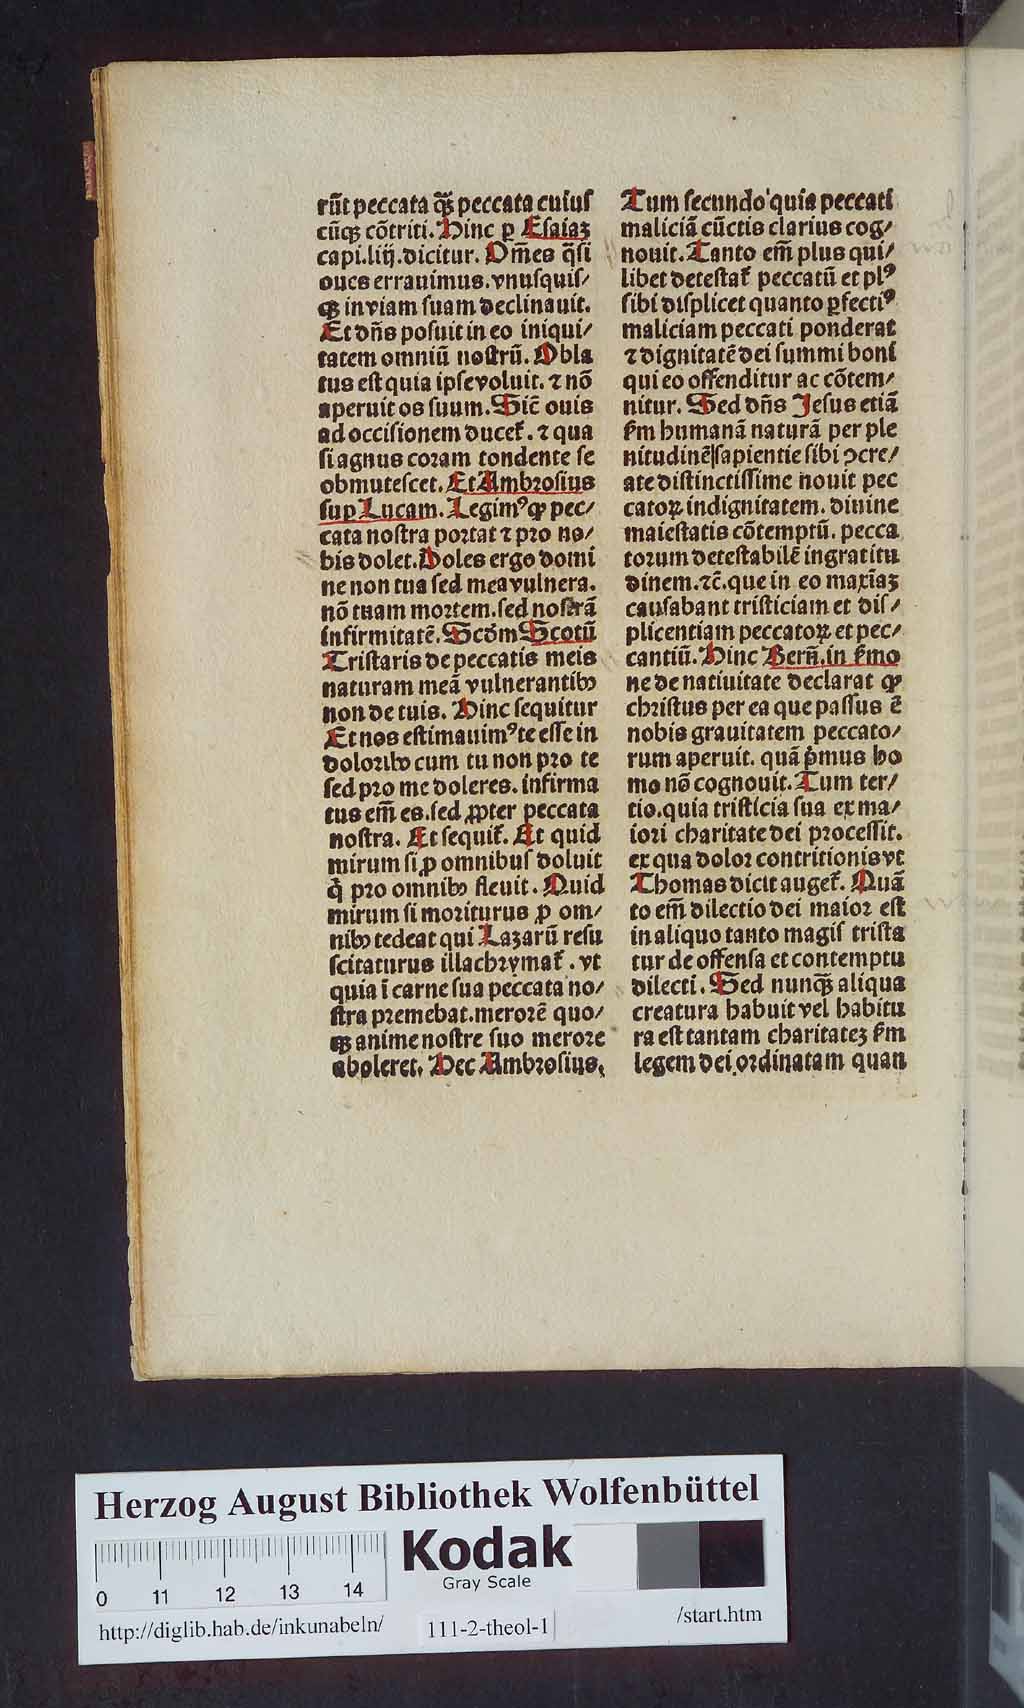 rūt peccata q̄ꝫ peccata cuiuſ
cūqꝫ cōtriti. Hinc ꝑ Eſaiaꝫ
capi.liij.dicitur. Om̄es q̄ſi
oues errauimus.vnuſquiſ/
qꝫ in viam ſuam declinauit.
Et dn̄s poſuit in eo iniqui/
tatem omniū noſtrū. Obla
tus eſt quia ipſe voluit. ⁊ nō
aperuit os ſuum. Sic̄ ouis
ad occiſionem ducet̄. ⁊ qua
ſi agnus coꝛam tondente ſe
obmuteſcet. Et Ambꝛoſius
ſuꝑ Lucam. Legimꝰ ꝙ pec/
cata noſtra poꝛtat ⁊ pꝛo no/
bis dolet. Doles ergo domi
ne non tua ſed mea vulnera.
nō tuam moꝛtem. ſed noſtrā
infirmitatē. Scd̄m Scotū
Triſtaris de peccatis meis
naturam meā vulnerantibꝫ
non de tuis. Hinc ſequitur
Et nos eſtimauimꝰ te eſſe in
doloꝛibꝫ cum tu non pꝛo te
ſed pꝛo me doleres. infirma
tus em̄ es. ſed ꝓpter peccata
noſtra. Et ſequit̄. Et quid
mirum ſi ꝓ omnibuſ doluit
q̇ pꝛo omnibꝫ fleuit. Quid
mirum ſi moꝛiturus ꝓ om/
nibꝫ tedeat qui Lazarū reſu
ſcitaturus illachꝛymat̄. vt
quia ī carne ſua peccata no/
ſtra pꝛemebat. meroꝛē quo/
qꝫ anime noſtre ſuo meroꝛe
aboleret. Hec Ambꝛoſius.
Tum ſecundo quia peccati
maliciā cūctis clarius cog/
nouit. Tanto em̄ plus qui/
libet deteſtat̄ peccatū et plꝰ
ſibi diſplicet quanto ꝑfectiꝰ
maliciam peccati ponderat
⁊ dignitatē dei ſummi boni
qui eo offenditur ac cōtem/
nitur. Sed dn̄s Jeſus etiā
ẜm humanā naturā per ple
nitudinē ſapientie ſibi ↄcre/
ate diſtinctiſſime nouit pec
catoꝝ indignitatem. diuine
maieſtatis cōtemptū. pecca
toꝛum deteſtabilē ingratitu
dinem. ⁊c̄. que in eo maxīaꝫ
cauſabant triſticiam et diſ/
plicentiam peccatoꝝ et pec/
cantiū. Hinc Bern̄. in ẜmo
ne de natiuitate declarat ꝙ
chꝛiſtus per ea que paſſus ē
nobis grauitatem peccato/
rum aperuit. quā pͥmus ho
mo nō cognouit. Tum ter/
tio. quia triſticia ſua ex ma/
ioꝛi charitate dei pꝛoceſſit.
ex qua doloꝛ contritionis vt
Thomas dicit auget̄. Quā
to em̄ dilectio dei maioꝛ eſt
in aliquo tanto magiſ triſta
tur de offenſa et contemptu
dilecti. Sed nunq̄ꝫ aliqua
creatura habuit vel habitu
ra eſt tantam charitateꝫ ẜm
legem dei oꝛdinatam quan
Herzog August Bibliothek Wolfenbüttel
Kodak
Gray Scale
0 11 12 13 14
http://diglib.hab.de/inkunabeln/
111-2-theol-1
/start.htm